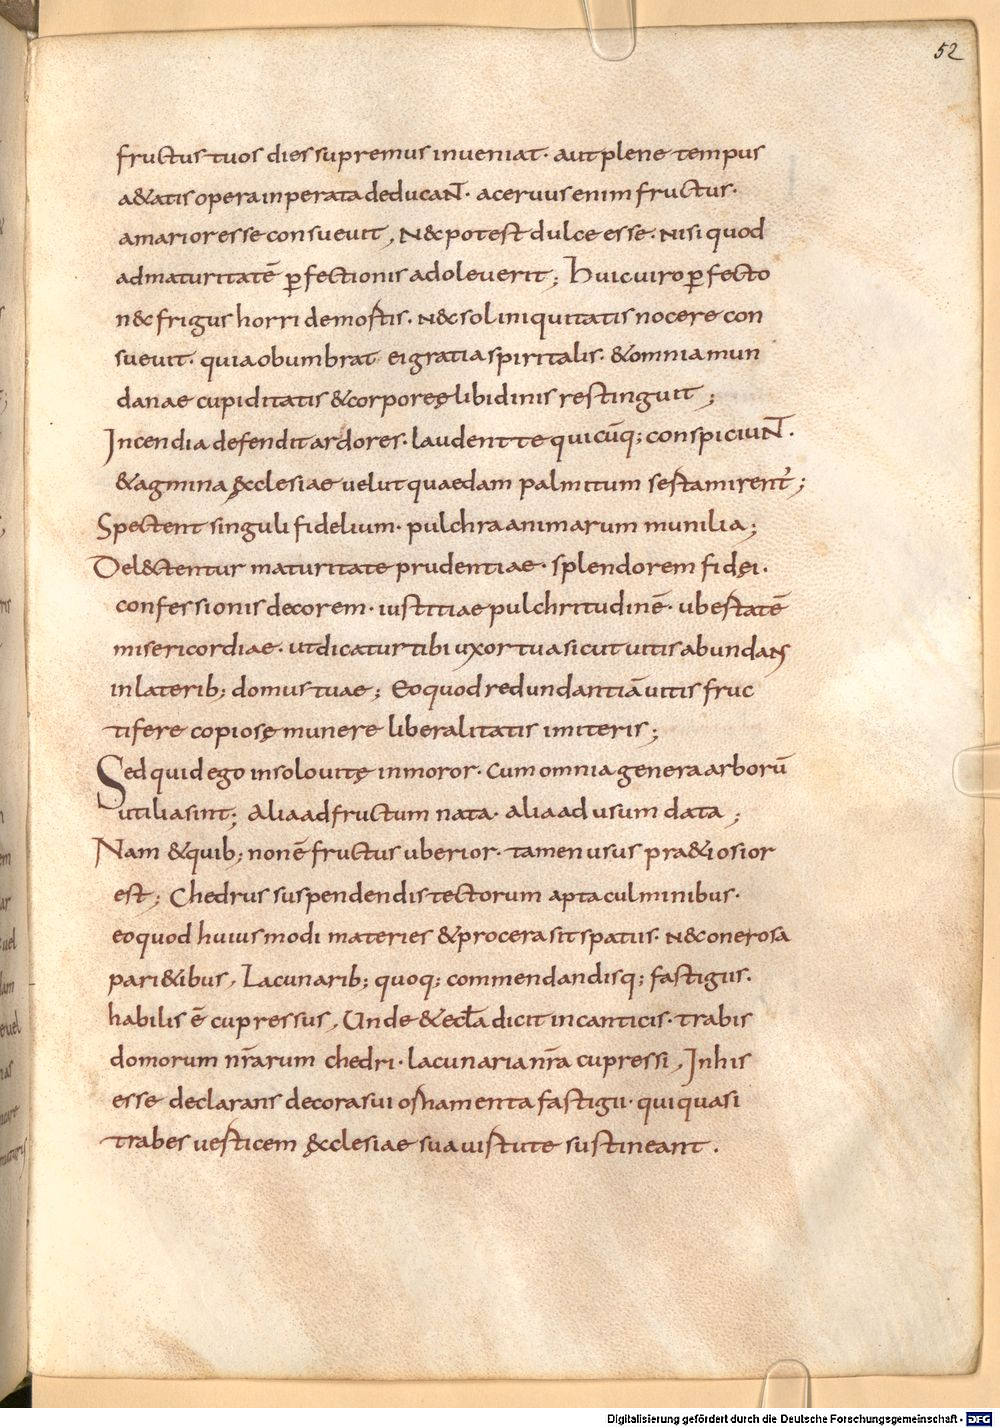 52
fructus tuos dies supremus inueniat· aut plene tempus
a&atis opera inperata deducaNT· aceruus enim fructus·
amarior esse consueuit, N&potest dulce esse· Nisi quod
ad maturitatē ꝑfectionis adoleuerit; Huic uiro ꝑfecto
n&frigus horridemostis· N&sol iniquitatis nocere con
sueuit· quia obumbrat ei gratia spiritalis· &omnia mun
danae cupiditatis &corporeę libidinis restinguit;
Incendia defendit ardores· laudent te quicūq; conspiciuNT·
&agmina ęcclesiae uelut quaedam palmitum sestamirent᾽;
Spectent singuli fidelium· pulchra animarum munilia;
Del&tentur maturitate prudentiae· splendorem fidęi·
confessionis decorem· iustitiae pulchritudinē· ubestatē
misericordiae· ut dicatur tibi uxor tua sicut uitis abundaNs
in laterib; domus tuae; Eo quod redundantiā uitis fruc
tifere copiosę munere liberalitatis imiteris;
Sed quid ego in solo uitę inmoror· Cum omnia genera arborū
utilia sint; Alia ad fructum nata· alia ad usum data;
Nam &quib; non ē fructus uberior· tamen usus pra&iosior
est; Chedrus suspendendis tectorum apta culminibus·
eo quod huiusmodi materies &procera sit spatiis· N&onerosa
pari&ibus, Lacunarib; quoq; commendandisq; fastigiis·
habilis ē cupressus, Unde &eccl̄a dicit in canticis· trabis
domorum nr̄arum chedri· lacunaria nr̄a cupressi, In his
esse declarans decora sui oshamenta fastigii· qui quasi
trabes uesticem ęcclesiae sua uistute sustineant·
Digitalisierung gefördert durch die Deutsche Forschungsgemeinschaft · DFG